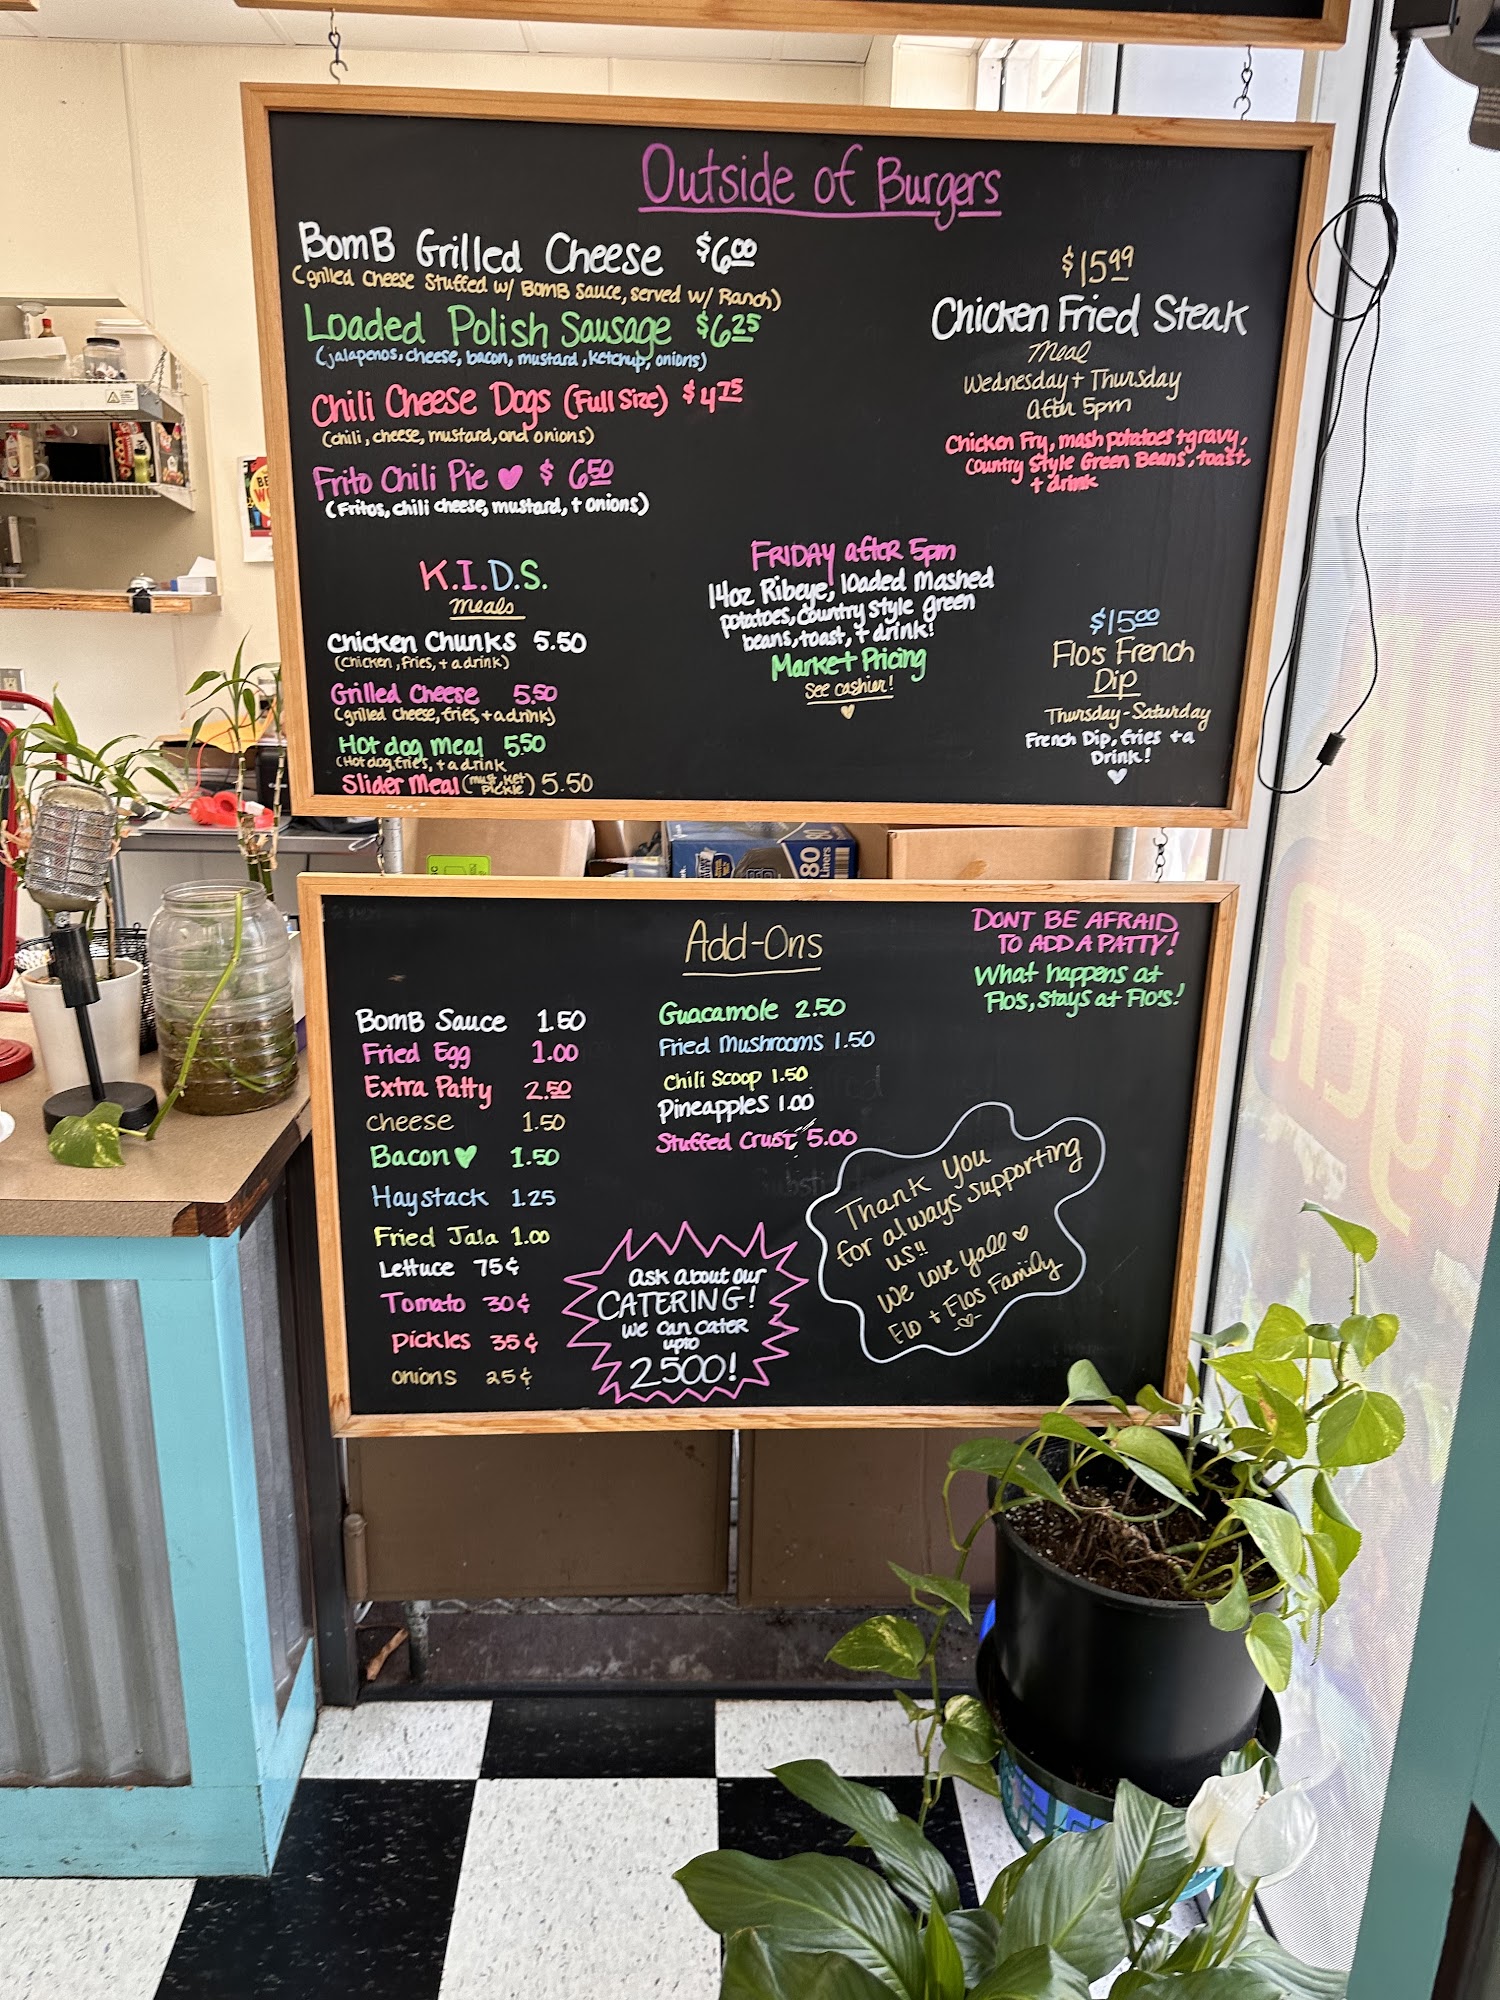 Outside of Burgers
BomB Grilled Cheese $6.00
(grilled cheese stuffed w/ BomB sauce, served w/ Ranch)
Loaded Polish Sausage $6.25
(jalapenos, cheese, bacon, mustard, ketchup, onions)
Chili Cheese Dogs (Full Size) $4.75
(chili, cheese, mustard, and onions)
Frito Chili Pie ♥ $6.50
(Fritos, chili cheese, mustard, + onions)
K.I.D.S.
meals
Chicken Chunks 5.50
(chicken, fries, + a drink)
Grilled Cheese 5.50
(grilled cheese, fries, + a drink)
Hot dog meal 5.50
(Hot dog, fries, + a drink
Slider Meal (must, ket, pickle) 5.50
FRIDAY after 5pm
14oz Ribeye, loaded mashed
potatoes, country style green
beans, toast, + drink!
Market Pricing
See cashier!
$15.99
Chicken Fried Steak
Meal
Wednesday + Thursday
after 5pm
Chicken Fry, mash potatoes + gravy,
Country Style Green Beans, toast,
+ drink
$15.00
Flo's French
Dip
Thursday-Saturday
French Dip, fries + a
Drink!
80
Liners
Add-Ons
BomB Sauce 1.50
Fried Egg 1.00
Extra Patty 2.50
cheese 1.50
Bacon ♥ 1.50
Haystack 1.25
Fried Jala 1.00
Lettuce 75¢
Tomato 30¢
Pickles 35¢
onions 25¢
Guacamole 2.50
Fried Mushrooms 1.50
Chili Scoop 1.50
Pineapples 1.00
Stuffed Crust 5.00
DONT BE AFRAID
TO ADD A PATTY!
What happens at
Flo's, stays at Flo's!
Ask about our
CATERING!
we can cater
upto
2500!
Thank you
for always supporting
us!!
We love yall ♡
Flo + Flos Family